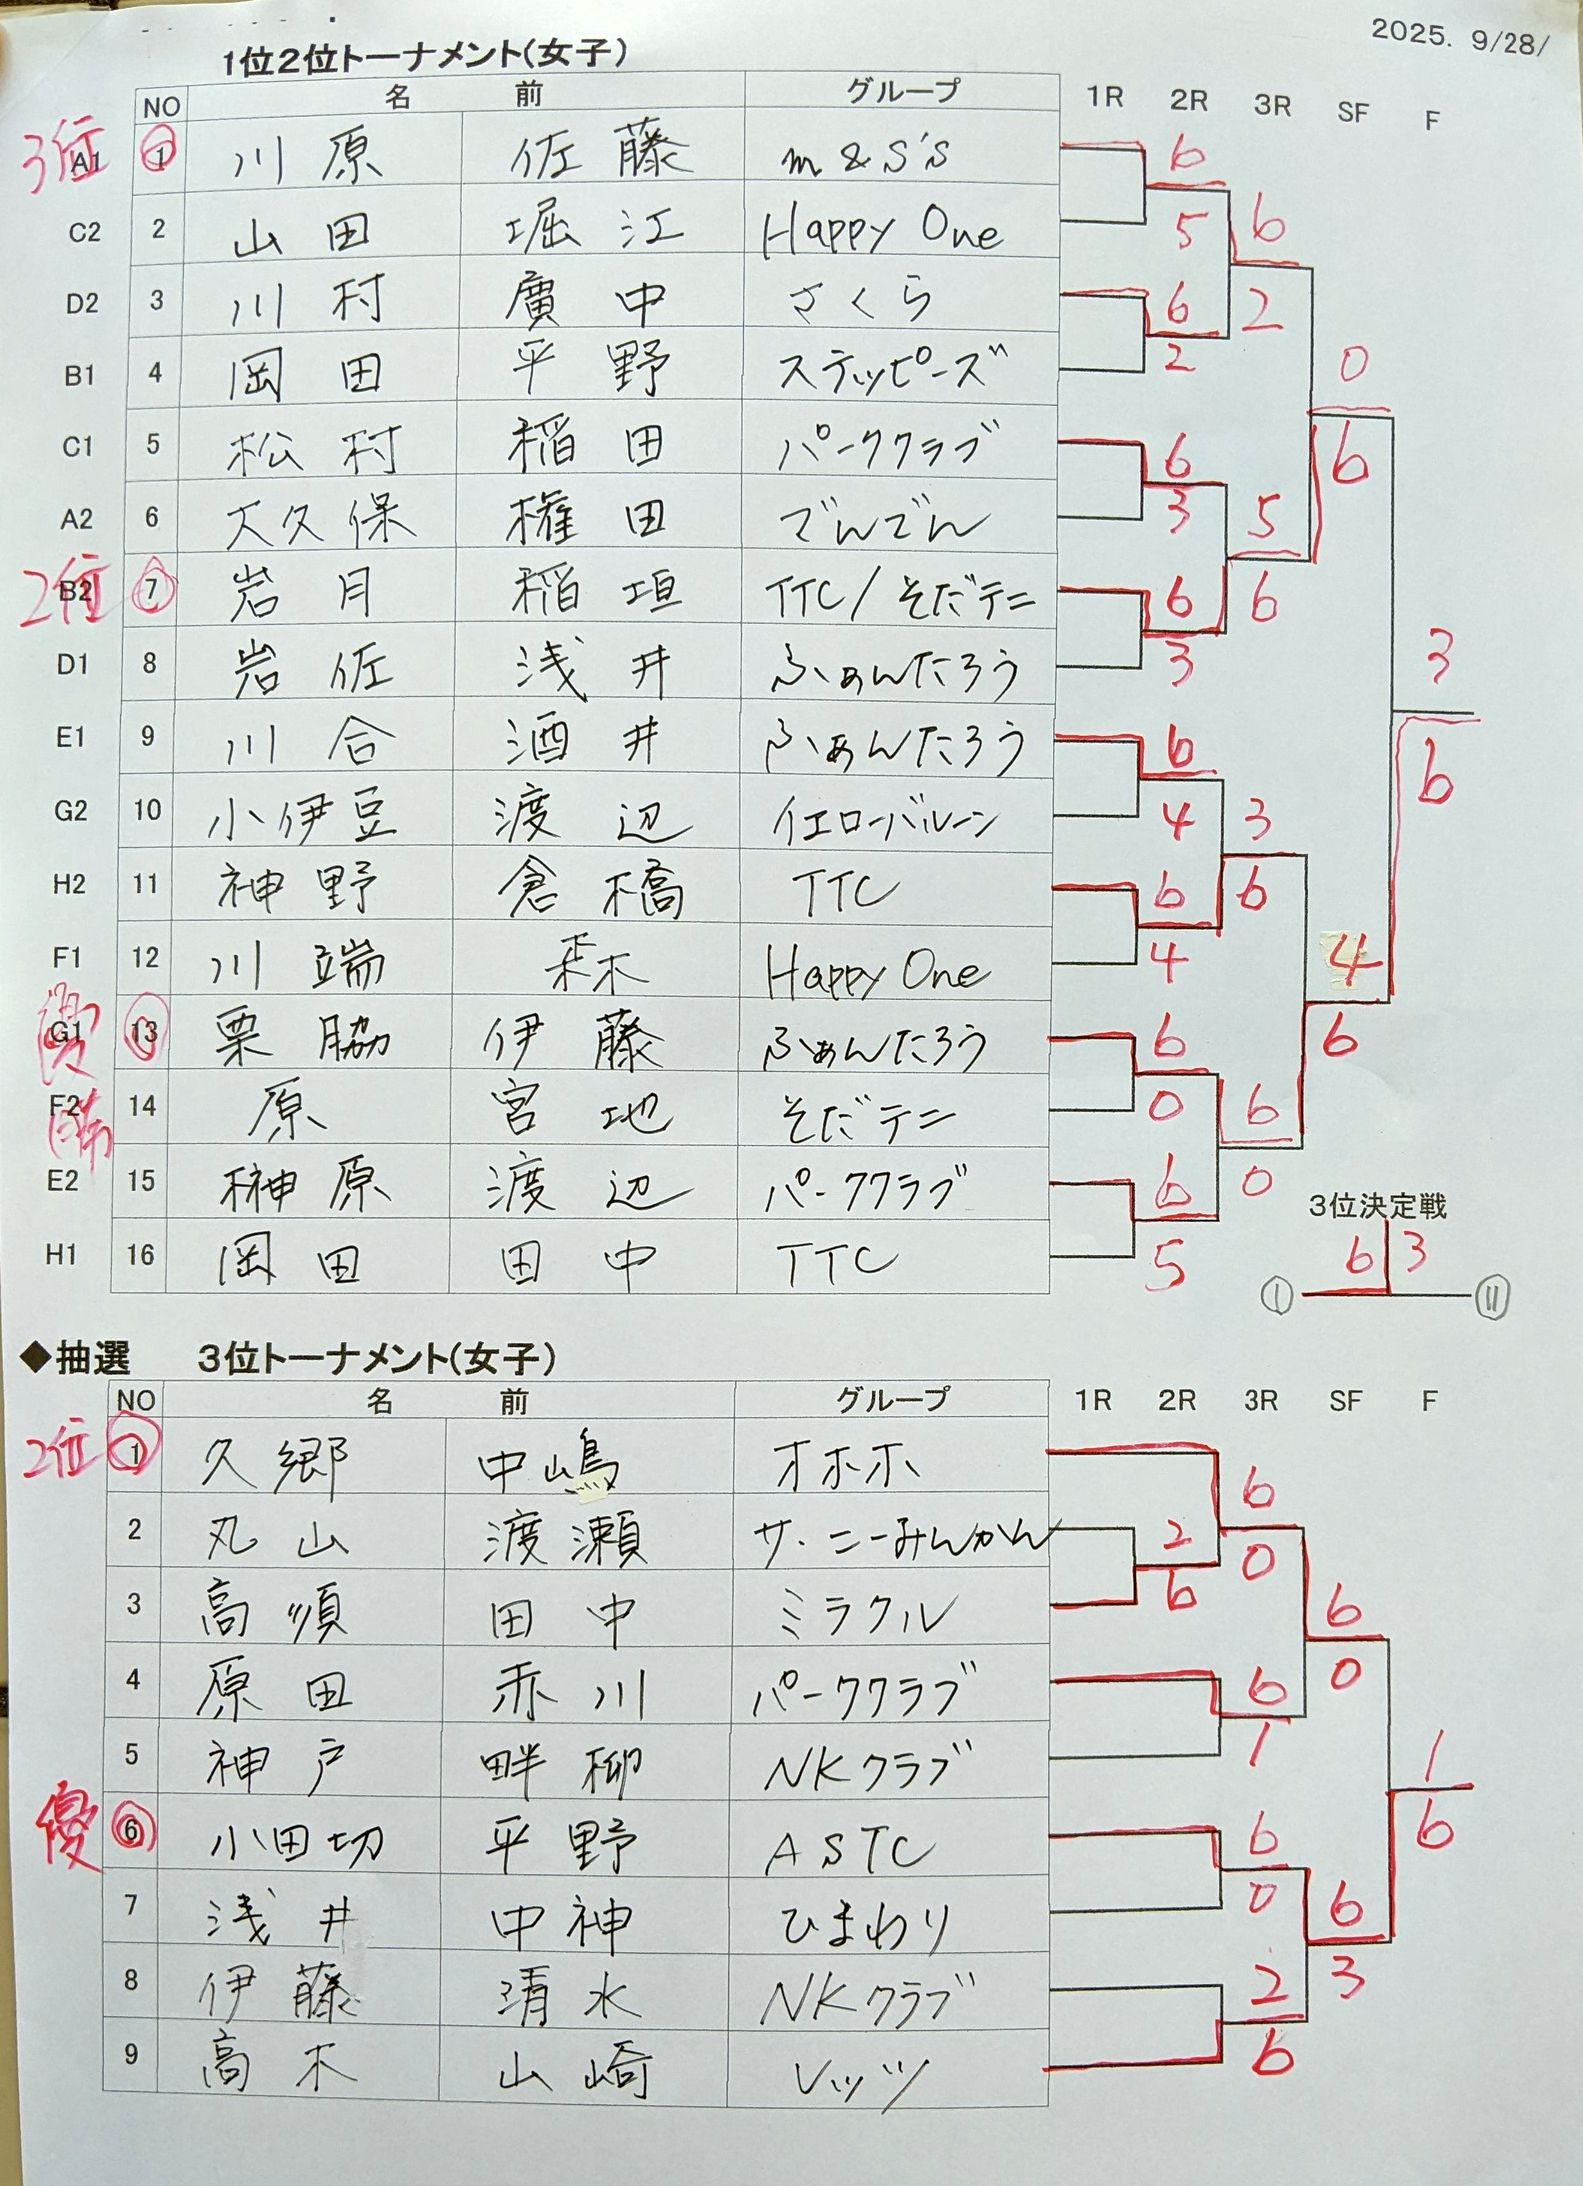 2025. 9/28/
1位2位トーナメント(女子)
NO 名 前 グループ 1R 2R 3R SF F
3位 A1 1 川原 佐藤 m&S's 6
C2 2 山田 堀江 Happy One 5 6
D2 3 川村 廣中 さくら 6 2
B1 4 岡田 平野 ステッピーズ 2 0
C1 5 松村 稲田 パーククラブ 6 6
A2 6 大久保 権田 でんでん 3 5
2位 B2 7 岩月 稲垣 TTC/そだテニ 6 6
D1 8 岩佐 浅井 ふぁんたろう 3 3
E1 9 川合 酒井 ふぁんたろう 6 6
G2 10 小伊豆 渡辺 イエローバルーン 4 3
H2 11 神野 倉橋 TTC 6 6
F1 12 川端 森 Happy One 4 4
優勝 G1 13 栗脇 伊藤 ふぁんたろう 6 6
F2 14 原 宮地 そだテニ 0 6
E2 15 榊原 渡辺 パーククラブ 6 0
H1 16 岡田 田中 TTC 5
3位決定戦
6 3
① ⑪
◆抽選 3位トーナメント(女子)
NO 名 前 グループ 1R 2R 3R SF F
2位 1 久郷 中嶋 オホホ 6
2 丸山 渡瀬 サ・ニーみんかん 2 0
3 高須 田中 ミラクル 6 6
4 原田 赤川 パーククラブ 6 0
5 神戸 畔柳 NKクラブ 1 1
優 6 小田切 平野 ASTC 6 6
7 浅井 中神 ひまわり 0 6
8 伊藤 清水 NKクラブ 2 3
9 高木 山崎 レッツ 6